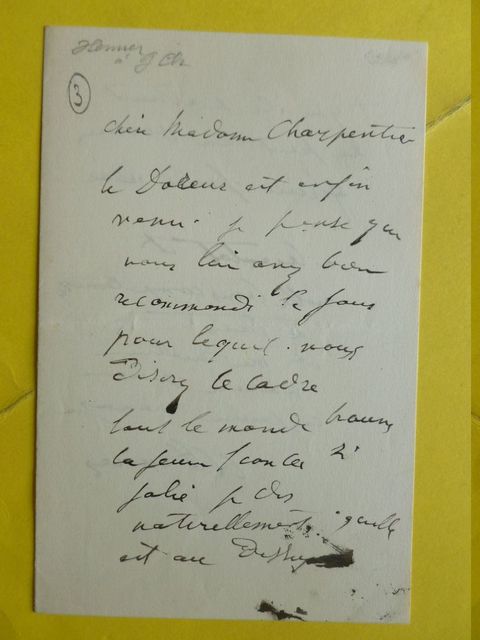 Henner
à
3
chère Madame Charpentier
le Doreur est enfin
venu. je pense que
vous lui avez bien
recommandé le jour
pour lequel. vous
Désirez le cadre
tout le monde trouve
la jeune si
jolie je dis
naturellement. qu'elle
est au Dessous